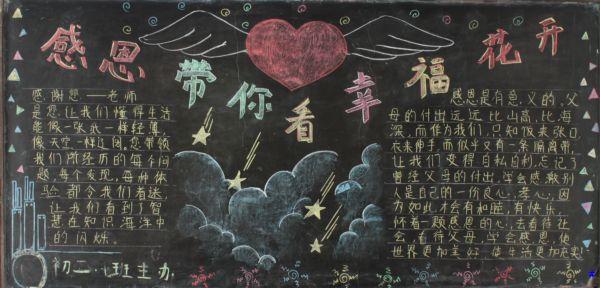 感恩带你看幸福花开
感谢您——老师
是您,让我们懂得生活
能像一张纸一样轻薄,
像天空一样辽阔,您带领
我们所经历的每个问
题,每个发现,每种体
验都令我们着迷,
让我们看到了智
慧在知识海洋中
的闪烁。
初二 班主办
感恩是有意义的,父
母的付出远远比山高,比海
深,而作为我们,只知饭来张口,
衣来伸手,而似乎又有一条隔离带,
让我们变得自私自利,忘记了
曾经父母的付出,学会感激别
人是自己的一份良心,孝心,因
为如此,才会有和睦,有快乐,
怀着一颗感恩的心,去看待社
会,看待父母,学会感恩,使
世界更加美好,使生活更加充实